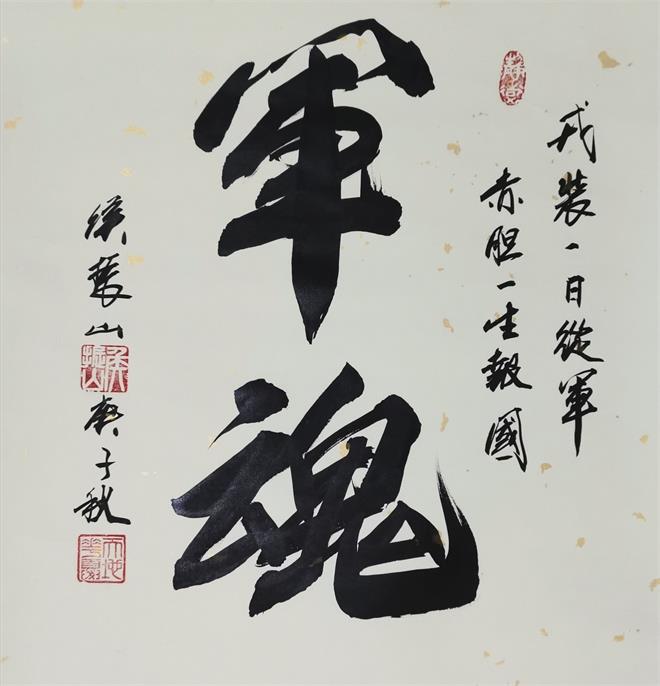 戎裝一日從軍
赤胆一生報國
軍魂
山
庚子秋